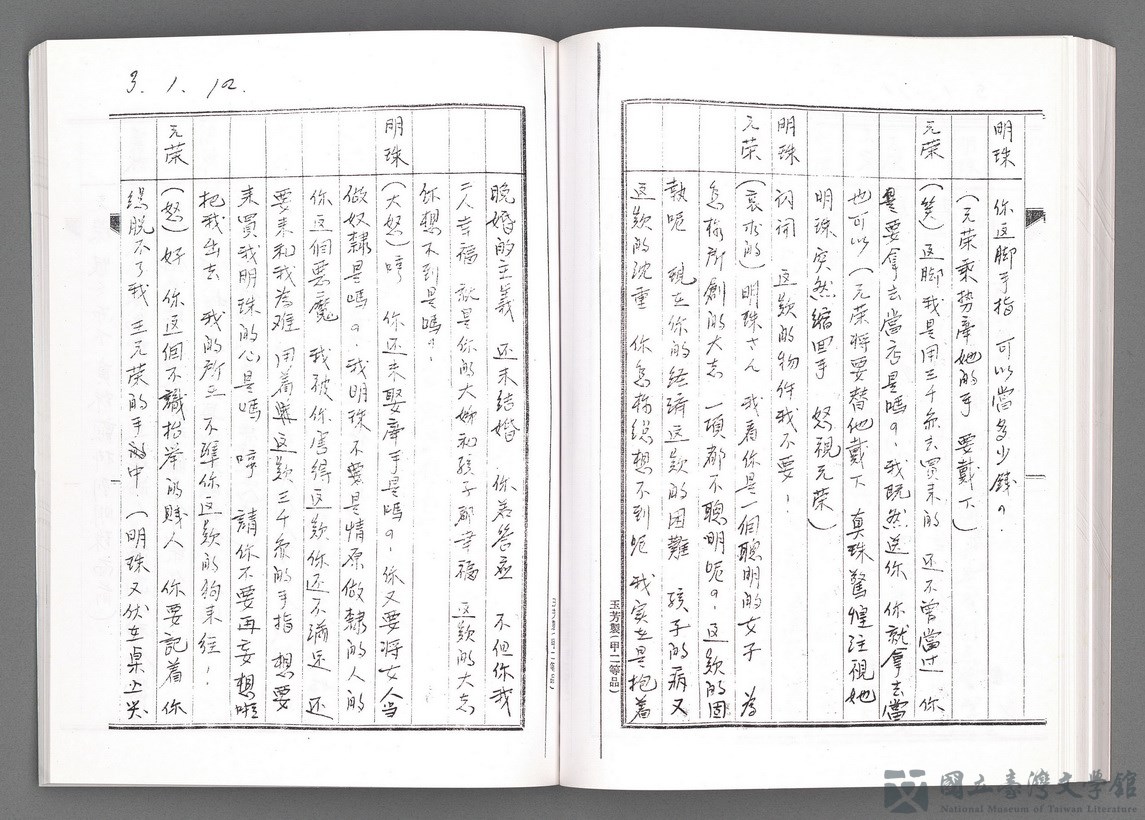 明珠 你這脚手指 可以當多少錢？.
(元荣乘势牽她的手 要戴下)
元荣 (笑) 這脚我是用三千圓去買来的 还不曾當过 你
是要拿去當店是嗎？. 我既然送你 你就拿去當
也可以 (元荣将要替他戴下 真珠驚惶注視她
明珠突然縮回手 怒視元荣)
明珠 词词 這款的物件我不要！
元荣 (哀求的) 明珠さん 我看你是一個聰明的女子 為
怎樣所創的大志 一項都不聰明呢？. 這款的固
執呃 現在你的经濟這款的困難 孩子的病又
這款的沈重 你怎樣総想不到呃 我実在是抱着
玉芳製(甲二等品)
3. 1. 12.
晚婚的主義 还未结婚 你若答应 不但你我
二人幸福 就是你的大姉和孩子都幸福 這款的大志
你想不到是嗎？.
明珠 (大怒) 哼 你还未娶牽手是嗎？. 你又要将女人当
做奴隸是嗎？. 我明珠不要是情原做隸的人的
你這個悪魔 我被你害得這款你还不満足 还
要来和我為难 用着這款三千圓的手指 想要
来買我明珠的心是嗎 哼 請你不要再妄想啦
把我出去 我的所在 不準你這款的狗来经！
元荣 (怒) 好 你這個不識抬举的賎人 你要記着 你
総脱不了我 王元荣的手中. (明珠又伏在桌上哭
國立臺灣文學館
National Museum of Taiwan Literature